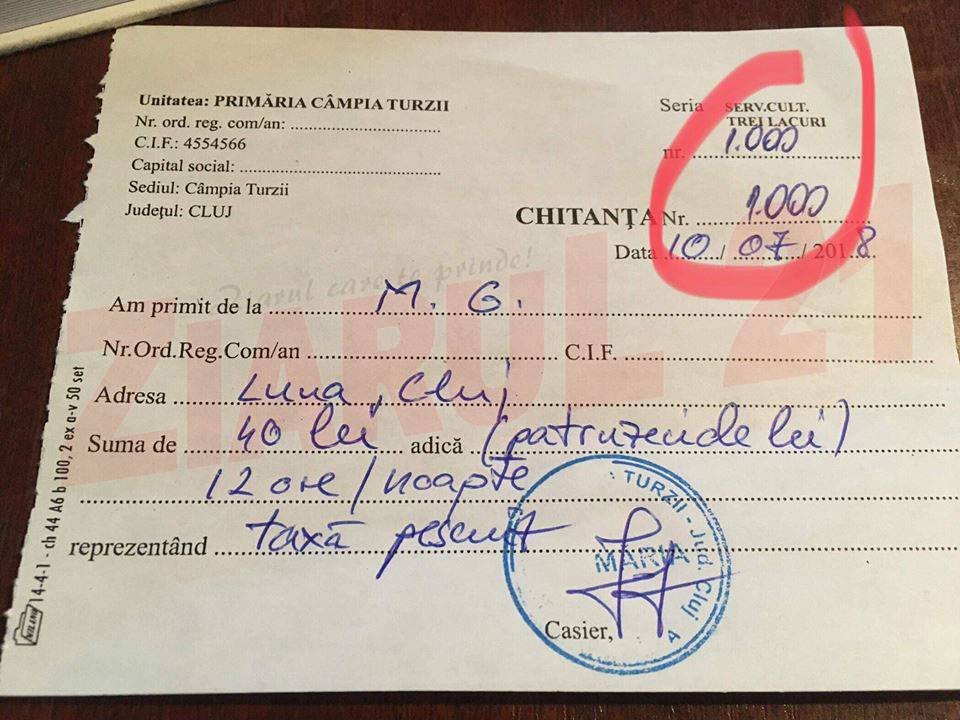 Unitatea: PRIMĂRIA CÂMPIA TURZII
Nr. ord. reg. com/an: ........................
C.I.F.: 4554566
Capital social: ........................
Sediul: Câmpia Turzii
Județul: CLUJ
Seria SERV.CULT.
TREI LACURI
nr. 1.000
CHITANȚA Nr. 1.000
Data 10/07/2018
Ziarul care te prinde!
ZIARUL 21
Am primit de la M. G.
Nr.Ord.Reg.Com/an ........................ C.I.F. ........................
Adresa Luna, Cluj
Suma de 40 lei adică (patruzeci de lei)
12 ore / noapte
reprezentând taxă pescuit
TURZII - Jud. Cluj
Casier,
14-4-1 - ch 44 A6 b 100, 2 ex a-v 50 set